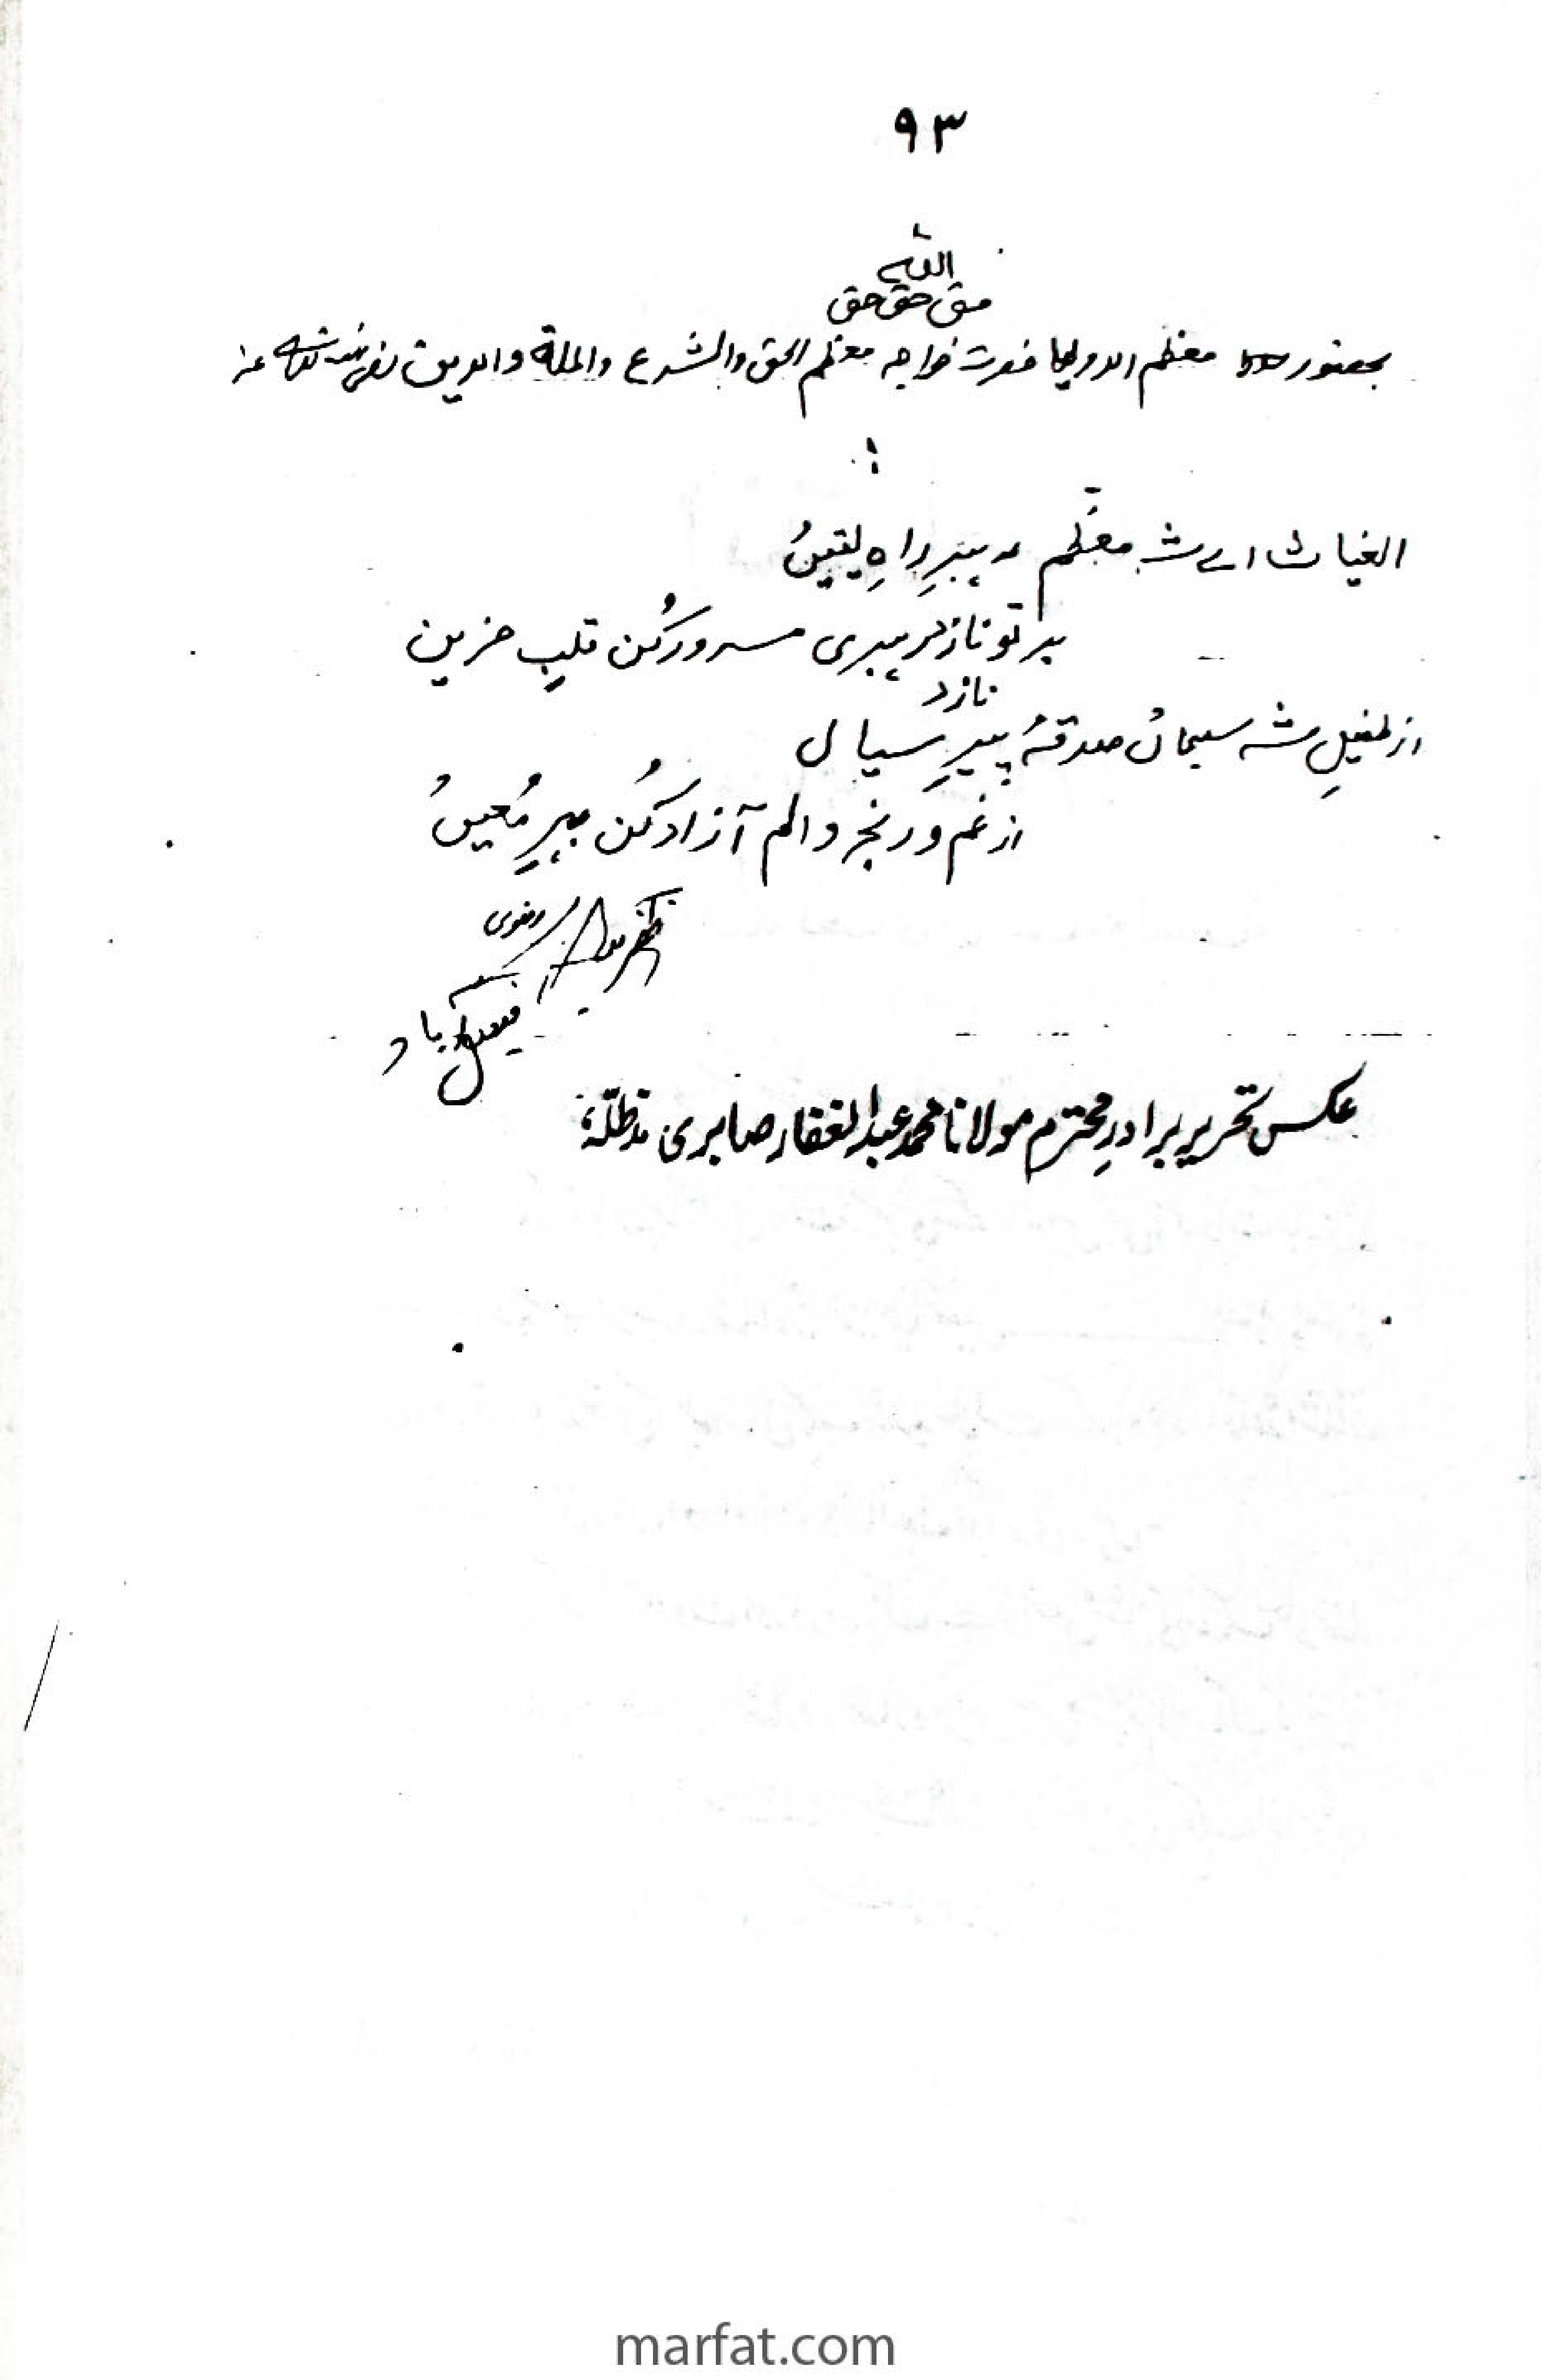 ۹۳
اللہ
حق حق حق
بحضور معظم الاولیا حضرت خواجہ معظم الحق والشرع والملۃ والدین رضی اللہ تعالیٰ عنہ
الغیاث اے شہ معظّم پیرِ راہِ یقیں
بر تو نازد ہر پیری مسرور کُن قلبِ حزین
نازد
از طفیلِ شہ سلیماں صدقۂ پیرِ سیال
از غم و رنج و الم آزاد کُن پیرِ مُعیں
رضوی
فیصل آباد
عکس تحریر برادرِ محترم مولانا محمد عبدالغفار صابری مدظلّہٗ
marfat.com